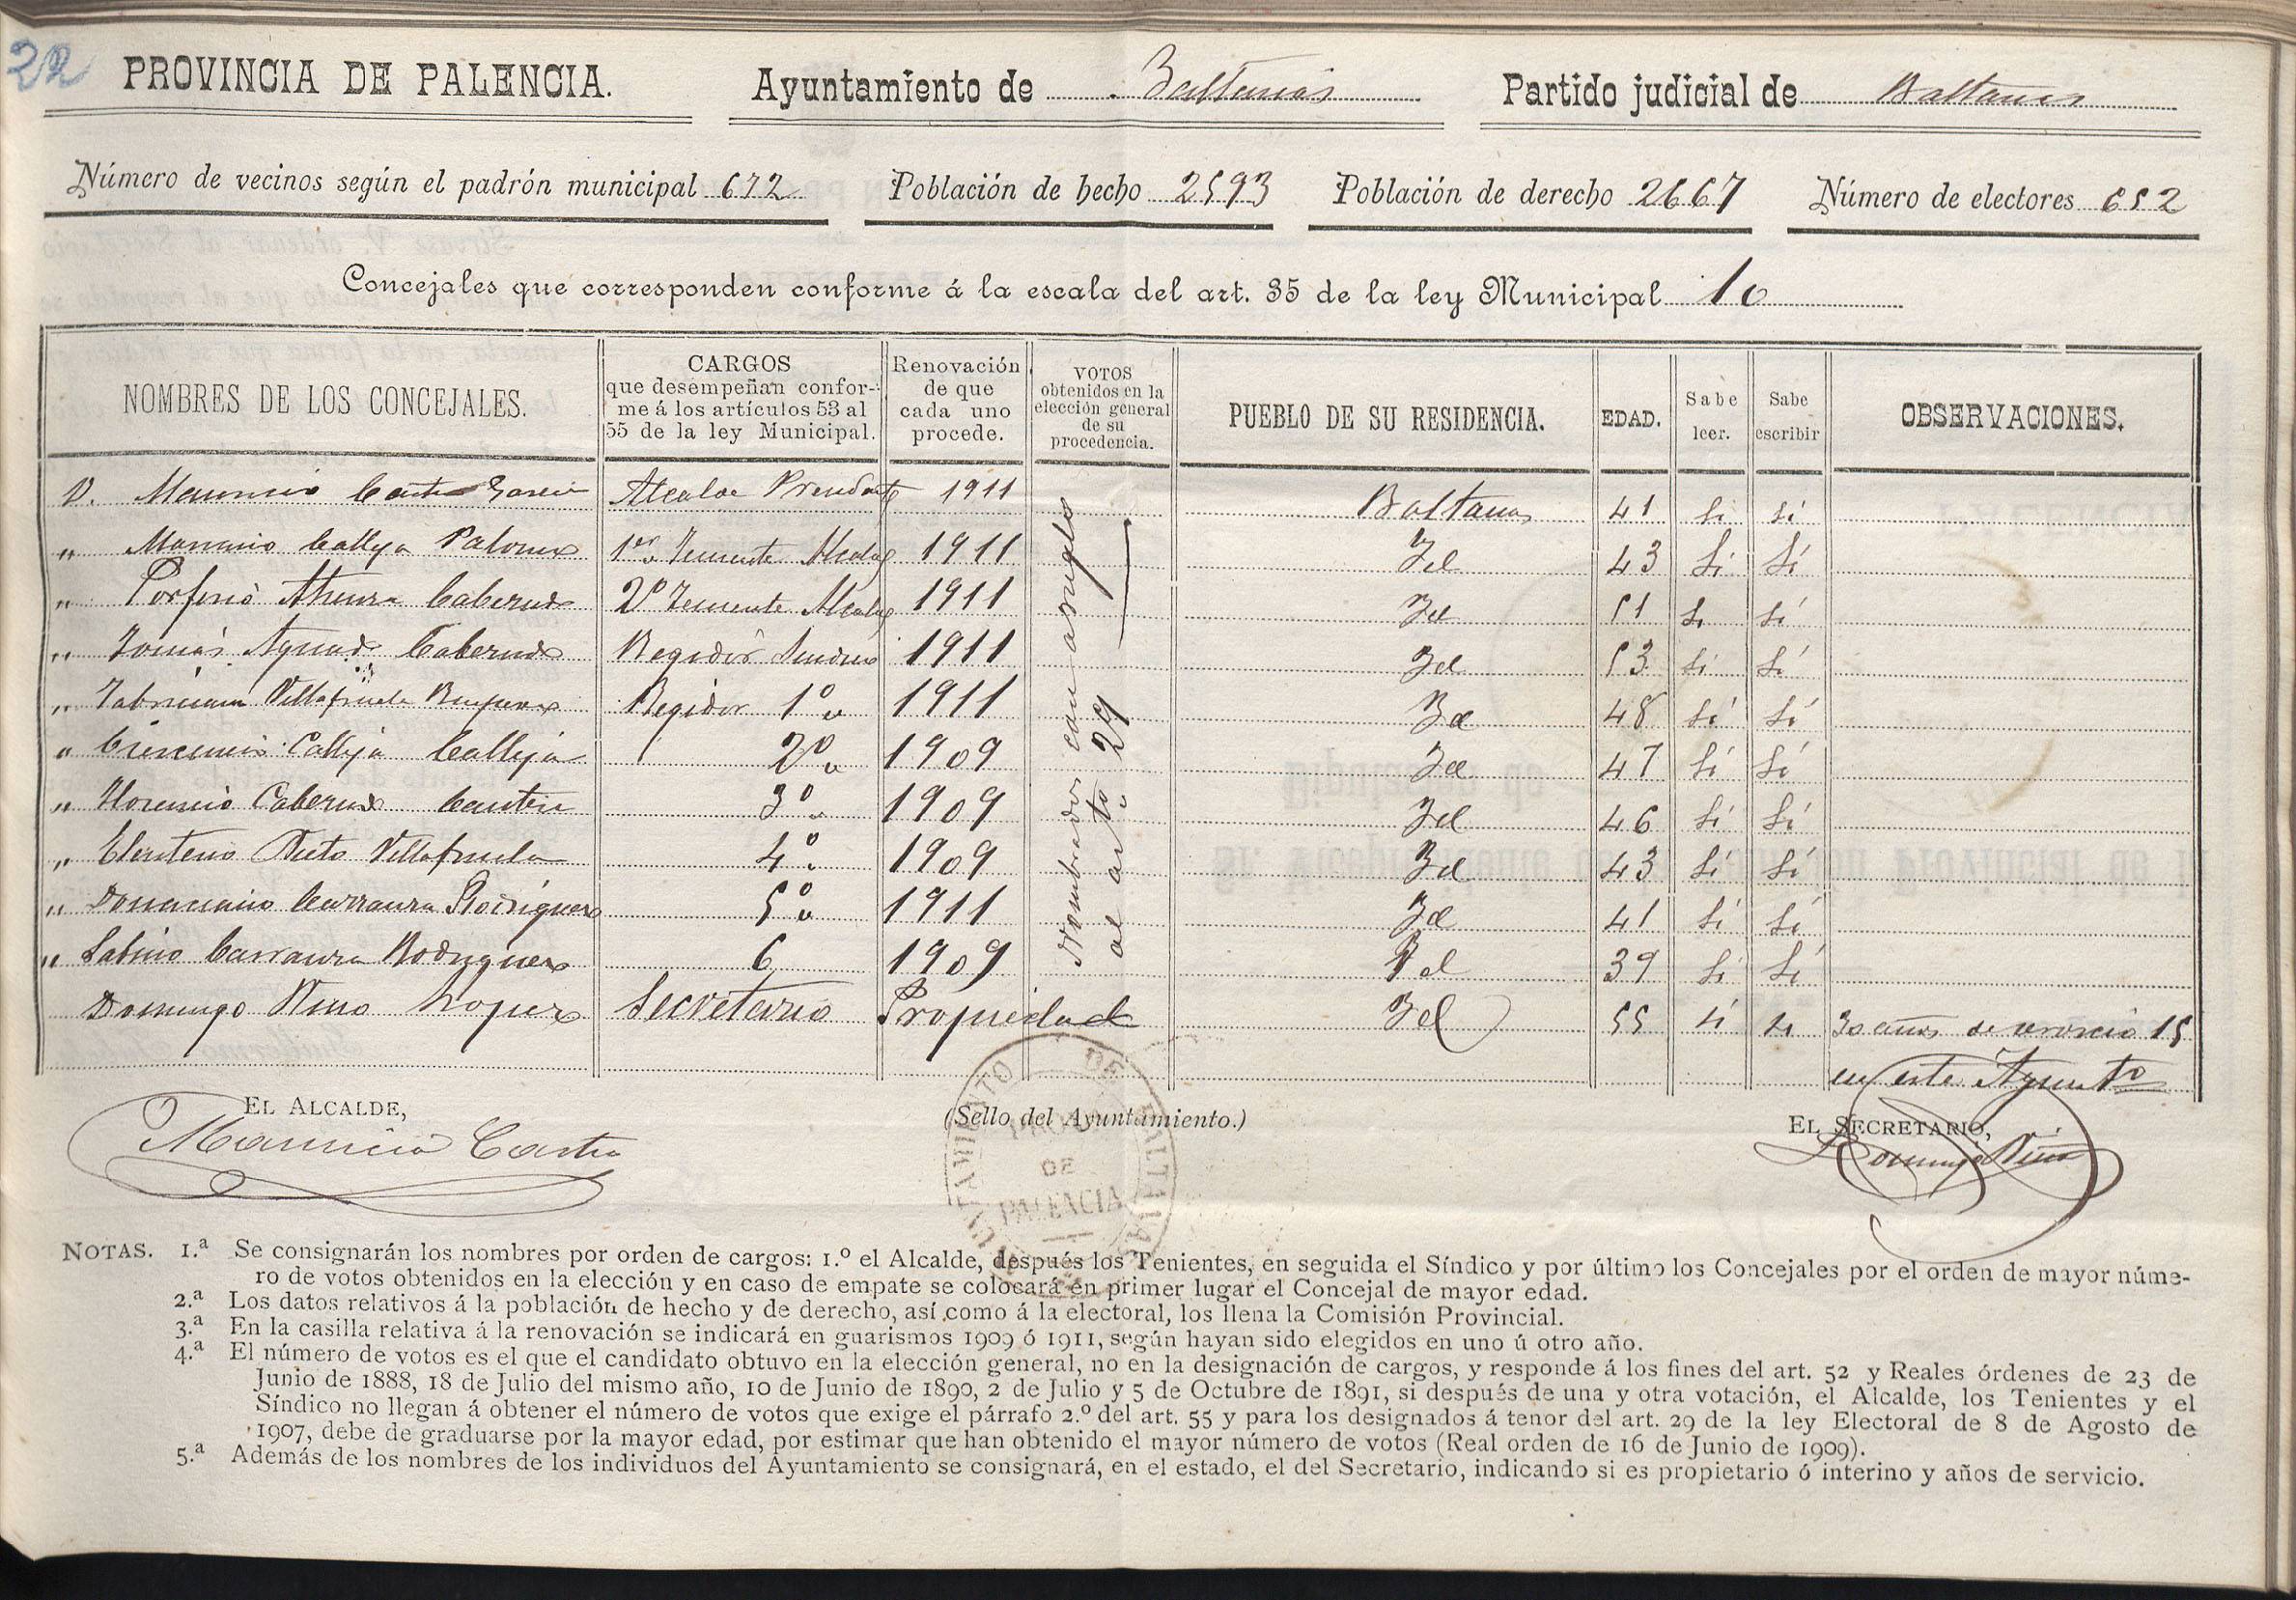 22
PROVINCIA DE PALENCIA. Ayuntamiento de Baltanás Partido judicial de Baltanás
Número de vecinos según el padrón municipal 672 Población de hecho 2593 Población de derecho 2667 Número de electores 652
Concejales que corresponden conforme á la escala del art. 35 de la ley Municipal 10
NOMBRES DE LOS CONCEJALES.
CARGOS
que desempeñan confor-
me á los artículos 53 al
55 de la ley Municipal.
Renovación
de que
cada uno
procede.
VOTOS
obtenidos en la
elección general
de su
procedencia.
PUEBLO DE SU RESIDENCIA.
EDAD.
Sabe
leer.
Sabe
escribir
OBSERVACIONES.
D. Mauricio Castro García Alcalde Presidente 1911 Baltanas 41 Si Sí
" Mariano Calleja Palomo 1er Teniente Alcalde 1911 Id 43 Si Sí
" Porfirio Cabezudo 2º Teniente Alcalde 1911 Id 51 Si Sí
" Tomás Aguado Cabezudo Regidor Sindico 1911 Id 53 Si Sí
" Villafruela Regidor 1º 1911 Id 48 Sí Sí
" Calleja Calleja 2º 1909 Id 47 Sí Sí
" Florencio Cabezudo 3º 1909 Id 46 Sí Sí
" Eleuterio Nieto Villafruela 4º 1909 Id 43 Sí Sí
" Rodriguez 5º 1911 Id 41 Sí Sí
" Sabino Rodriguez 6 1909 Id 39 Si Sí
Domingo Nino Lopez Secretario Propiedad Id 55 Si Si 30 años de servicio 15
en este Ayuntto
Nombrados con arreglo
al arto 29
EL ALCALDE,
Mauricio Castro
(Sello del Ayuntamiento.)
AYUNTAMIENTO DE BALTANAS
PROVA
DE
PALENCIA
EL SECRETARIO,
Domingo Nino
NOTAS. 1.ª Se consignarán los nombres por orden de cargos: 1.º el Alcalde, después los Tenientes, en seguida el Síndico y por último los Concejales por el orden de mayor núme-
ro de votos obtenidos en la elección y en caso de empate se colocará en primer lugar el Concejal de mayor edad.
2.ª Los datos relativos á la población de hecho y de derecho, así como á la electoral, los llena la Comisión Provincial.
3.ª En la casilla relativa á la renovación se indicará en guarismos 1909 ó 1911, según hayan sido elegidos en uno ú otro año.
4.ª El número de votos es el que el candidato obtuvo en la elección general, no en la designación de cargos, y responde á los fines del art. 52 y Reales órdenes de 23 de
Junio de 1888, 18 de Julio del mismo año, 10 de Junio de 1890, 2 de Julio y 5 de Octubre de 1891, si después de una y otra votación, el Alcalde, los Tenientes y el
Síndico no llegan á obtener el número de votos que exige el párrafo 2.º del art. 55 y para los designados á tenor del art. 29 de la ley Electoral de 8 de Agosto de
1907, debe de graduarse por la mayor edad, por estimar que han obtenido el mayor número de votos (Real orden de 16 de Junio de 1909).
5.ª Además de los nombres de los individuos del Ayuntamiento se consignará, en el estado, el del Secretario, indicando si es propietario ó interino y años de servicio.